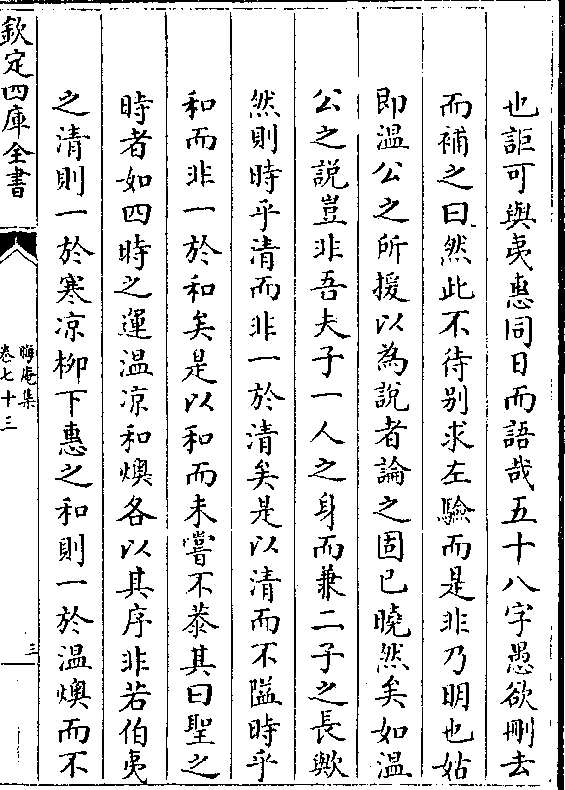 也詎可與夷惠同日而語哉五十八字愚欲刪去
而補之曰然此不待别求左驗而是非乃明也姑
即温公之所援以為説者論之固已曉然矣如温
公之説豈非吾夫子一人之身而兼二子之長歟
然則時乎清而非一於清矣是以清而不隘時乎
和而非一於和矣是以和而未嘗不恭其曰聖之
時者如四時之運温凉和燠各以其序非若伯夷
之清則一於寒凉栁下惠之和則一於温燠而不
欽定四庫全書
晦庵集
卷七十三
三